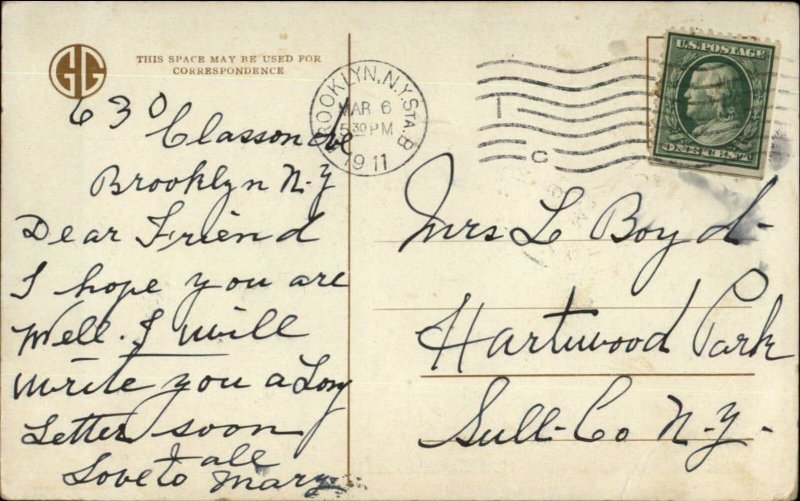 GG
THIS SPACE MAY BE USED FOR
CORRESPONDENCE
630
Classon Ave
Brooklyn N-Y
Dear Friend
I hope you are
Well. I will
write you a Long
Letter soon
Love to all
Mary
BROOKLYN, N.Y. STA. B
MAR 6
5 30 PM
1911
C
U.S. POSTAGE
ONE CENT
Mrs L Boyd-
Hartwood Park
Sull-Co N-Y-